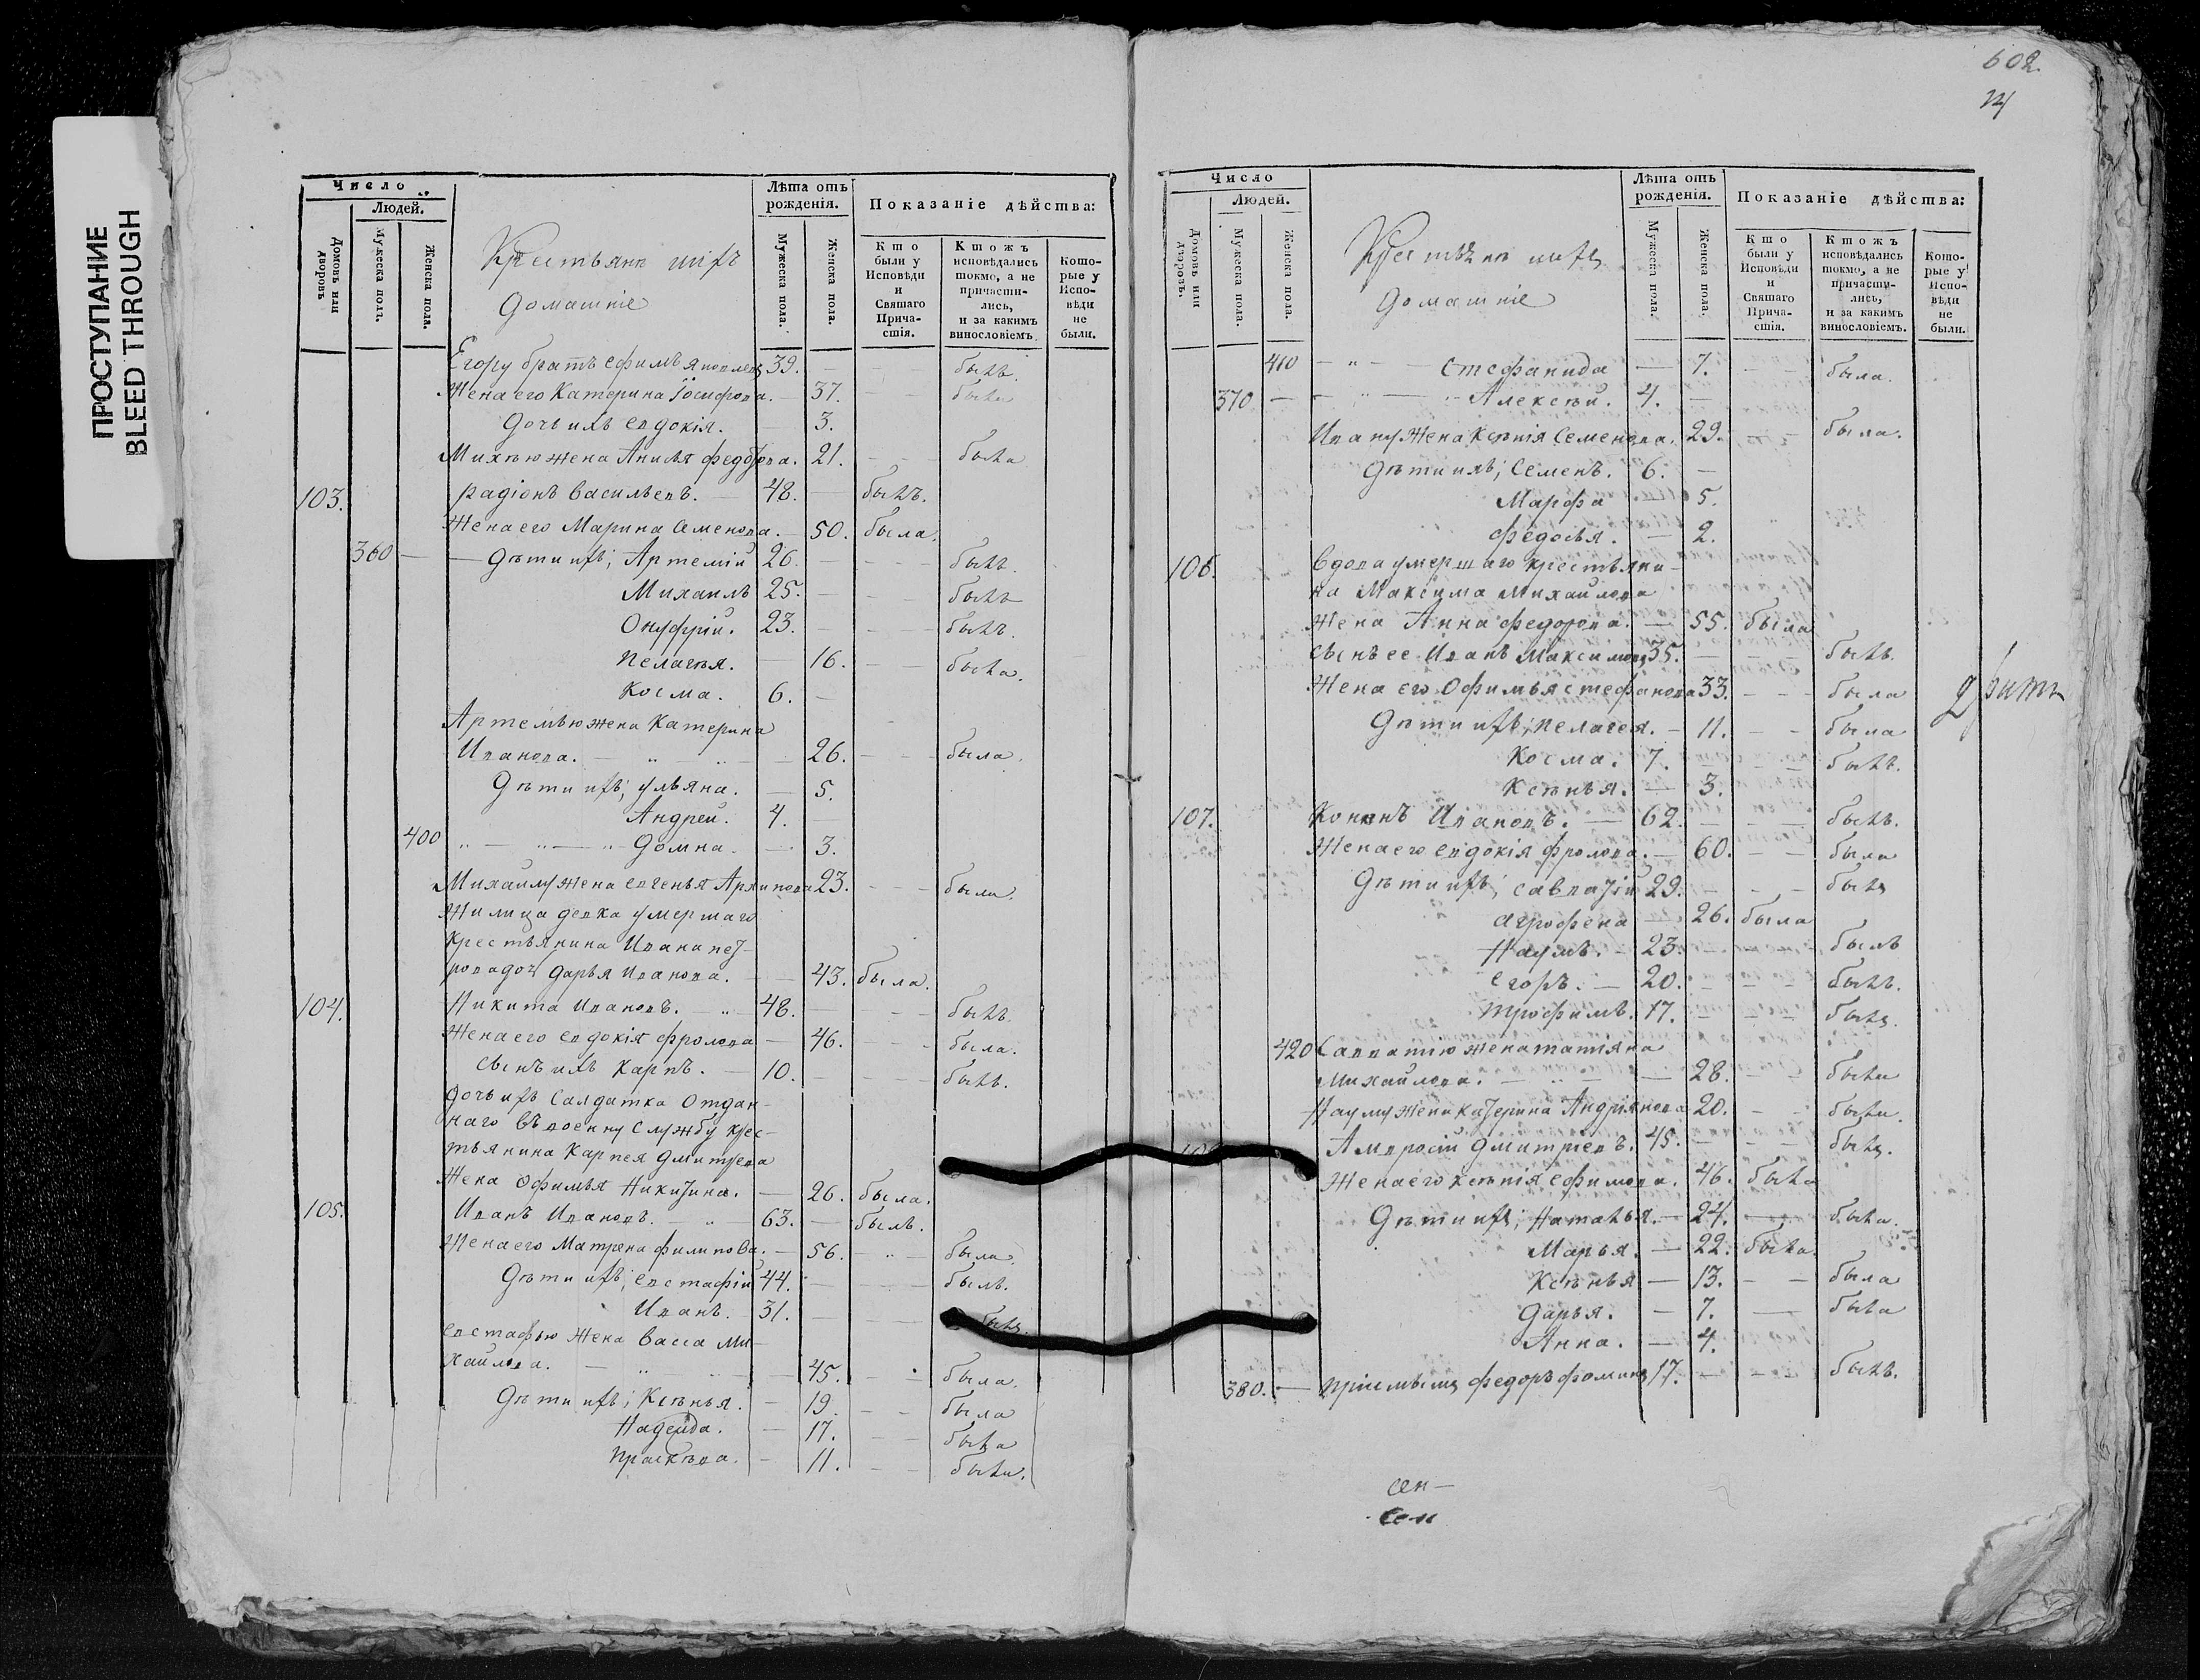 ПРОСТУПАНИЕ
BLEED THROUGH
Число
Людей.
Домовъ или дворовъ
Мужеска полъ.
Женска пола.
Крестьянъ ихъ
домашніе
Лѣта отъ рожденія.
Мужеска пола.
Женска пола.
Показаніе дѣйства:
Кто были у Исповѣди и Святаго Причастія.
Ктожъ исповѣдались токмо, а не причастились, и за какимъ винословіемъ.
Которые у Исповѣди не были.
Егору братъ Ефимъ Яковлевъ 39. былъ.
Жена его Катерина Іосифова. 37. была
Дочь ихъ Евдокія. 3.
Михѣю жена Анисья Федорова. 21. была
103. Радіонъ Васильевъ. 48. былъ.
Жена его Марина Семенова. 50. была.
360 Дѣти ихъ; Артемій 26. былъ.
Михаилъ 25. былъ
Онуфрій. 23. былъ.
Пелагѣя. 16. была.
Косма. 6.
Артемью жена Катерина
Иванова. 26. была.
Дѣти ихъ; Ульяна. 5.
Андрей. 4.
400 Домна. 3.
Михаилу жена Евгенья Архипова 23. была.
Жилица девка умершаго
Крестьянина Ивана Пет-
рова дочь Дарья Иванова. 43. была.
104. Никита Ивановъ. 48. былъ.
Жена его Евдокія Фролова 46. была.
Сынъ ихъ Карпъ. 10. былъ.
Дочь ихъ Салдатка Отдан-
наго въ военну службу крес-
тьянина Карпея Дмитрева
Жена Офимья Никитина. 26. была.
105. Иванъ Ивановъ. 63. былъ.
Жена его Матрена Филипова. 56. была.
Дѣти ихъ; Евстафій 44. былъ.
Иванъ. 31. былъ.
Евстафью жена Васса Ми-
хайлова. 45. была.
Дѣти ихъ; Ксѣнья. 19. была
Надежда. 17. была
Праскѣва. 11. была.
602.
Число
Людей.
Домовъ или дворовъ.
Мужеска пола.
Женска пола.
Крестьянъ ихъ
домашніе
Лѣта отъ рожденія.
Мужеска пола.
Женска пола.
Показаніе дѣйства:
Кто были у Исповѣди и Святаго Причастія.
Ктожъ исповѣдались токмо, а не причастились, и за какимъ винословіемъ.
Которые у Исповѣди не были.
410 Стефанида 7. была.
370 Алексѣй. 4.
Ивану жена Ксѣнія Семенова. 29. была.
Дѣти ихъ; Семенъ. 6.
Марфа 5.
Федосья. 2.
106. Вдова умершаго крестьяни-
на Максима Михайлова
Жена Анна Федорова. 55. была
Сынъ ее Иванъ Максимовъ 35. былъ.
Жена его Офимья Стефанова 33. была
Дѣти ихъ; Пелагея. 11. была
Косма. 7. былъ.
Ксѣнья. 3.
107. Кононъ Ивановъ. 62. былъ.
Жена его Евдокія Фролова. 60. была
Дѣти ихъ; Савватій 29. былъ
Агрофена 26. была
Наумъ. 23. былъ
Егоръ. 20. былъ.
Трофимъ. 17. былъ.
420 Савватію жена Татіяна
Михайлова. 28. была
Науму жена Катерина Андріянова 20. была.
Амвросій Дмитріевъ. 45. былъ.
Жена его Ксѣнія Ефимова. 46. была
Дѣти ихъ; Наталья. 24. была.
Марья. 22. была.
Ксѣнья 13. была
Дарья. 7. была
Анна. 4.
380. Пріемышъ Федоръ Фоминъ 17. былъ.